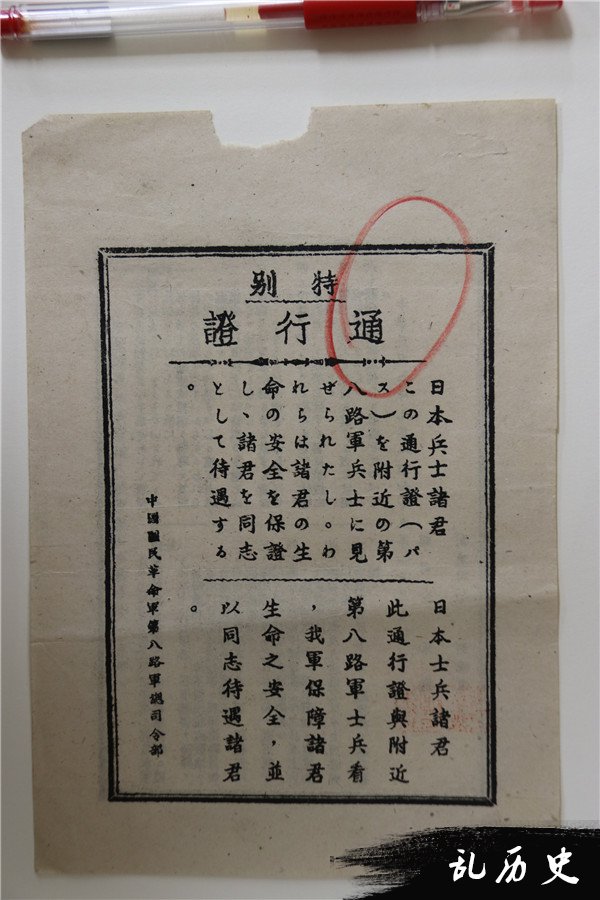 特别
通行證
日本兵士諸君
この通行證(パ
ス)を附近の第
八路軍兵士に見
ぜられたし。わ
れらは諸君の生
命の安全を保證
し、諸君を同志
として待遇する
。
日本士兵諸君
此通行證與附近
第八路軍士兵看
，我軍保障諸君
生命之安全，並
以同志待遇諸君
。
中國國民革命軍第八路軍總司令部
乱历史